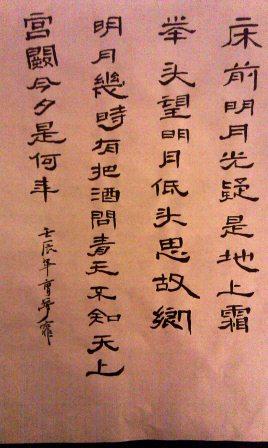 床前明月光疑是地上霜
举头望明月低头思故鄉
明月幾時有把酒問青天不知天上
宫闕今夕是何年
壬辰年